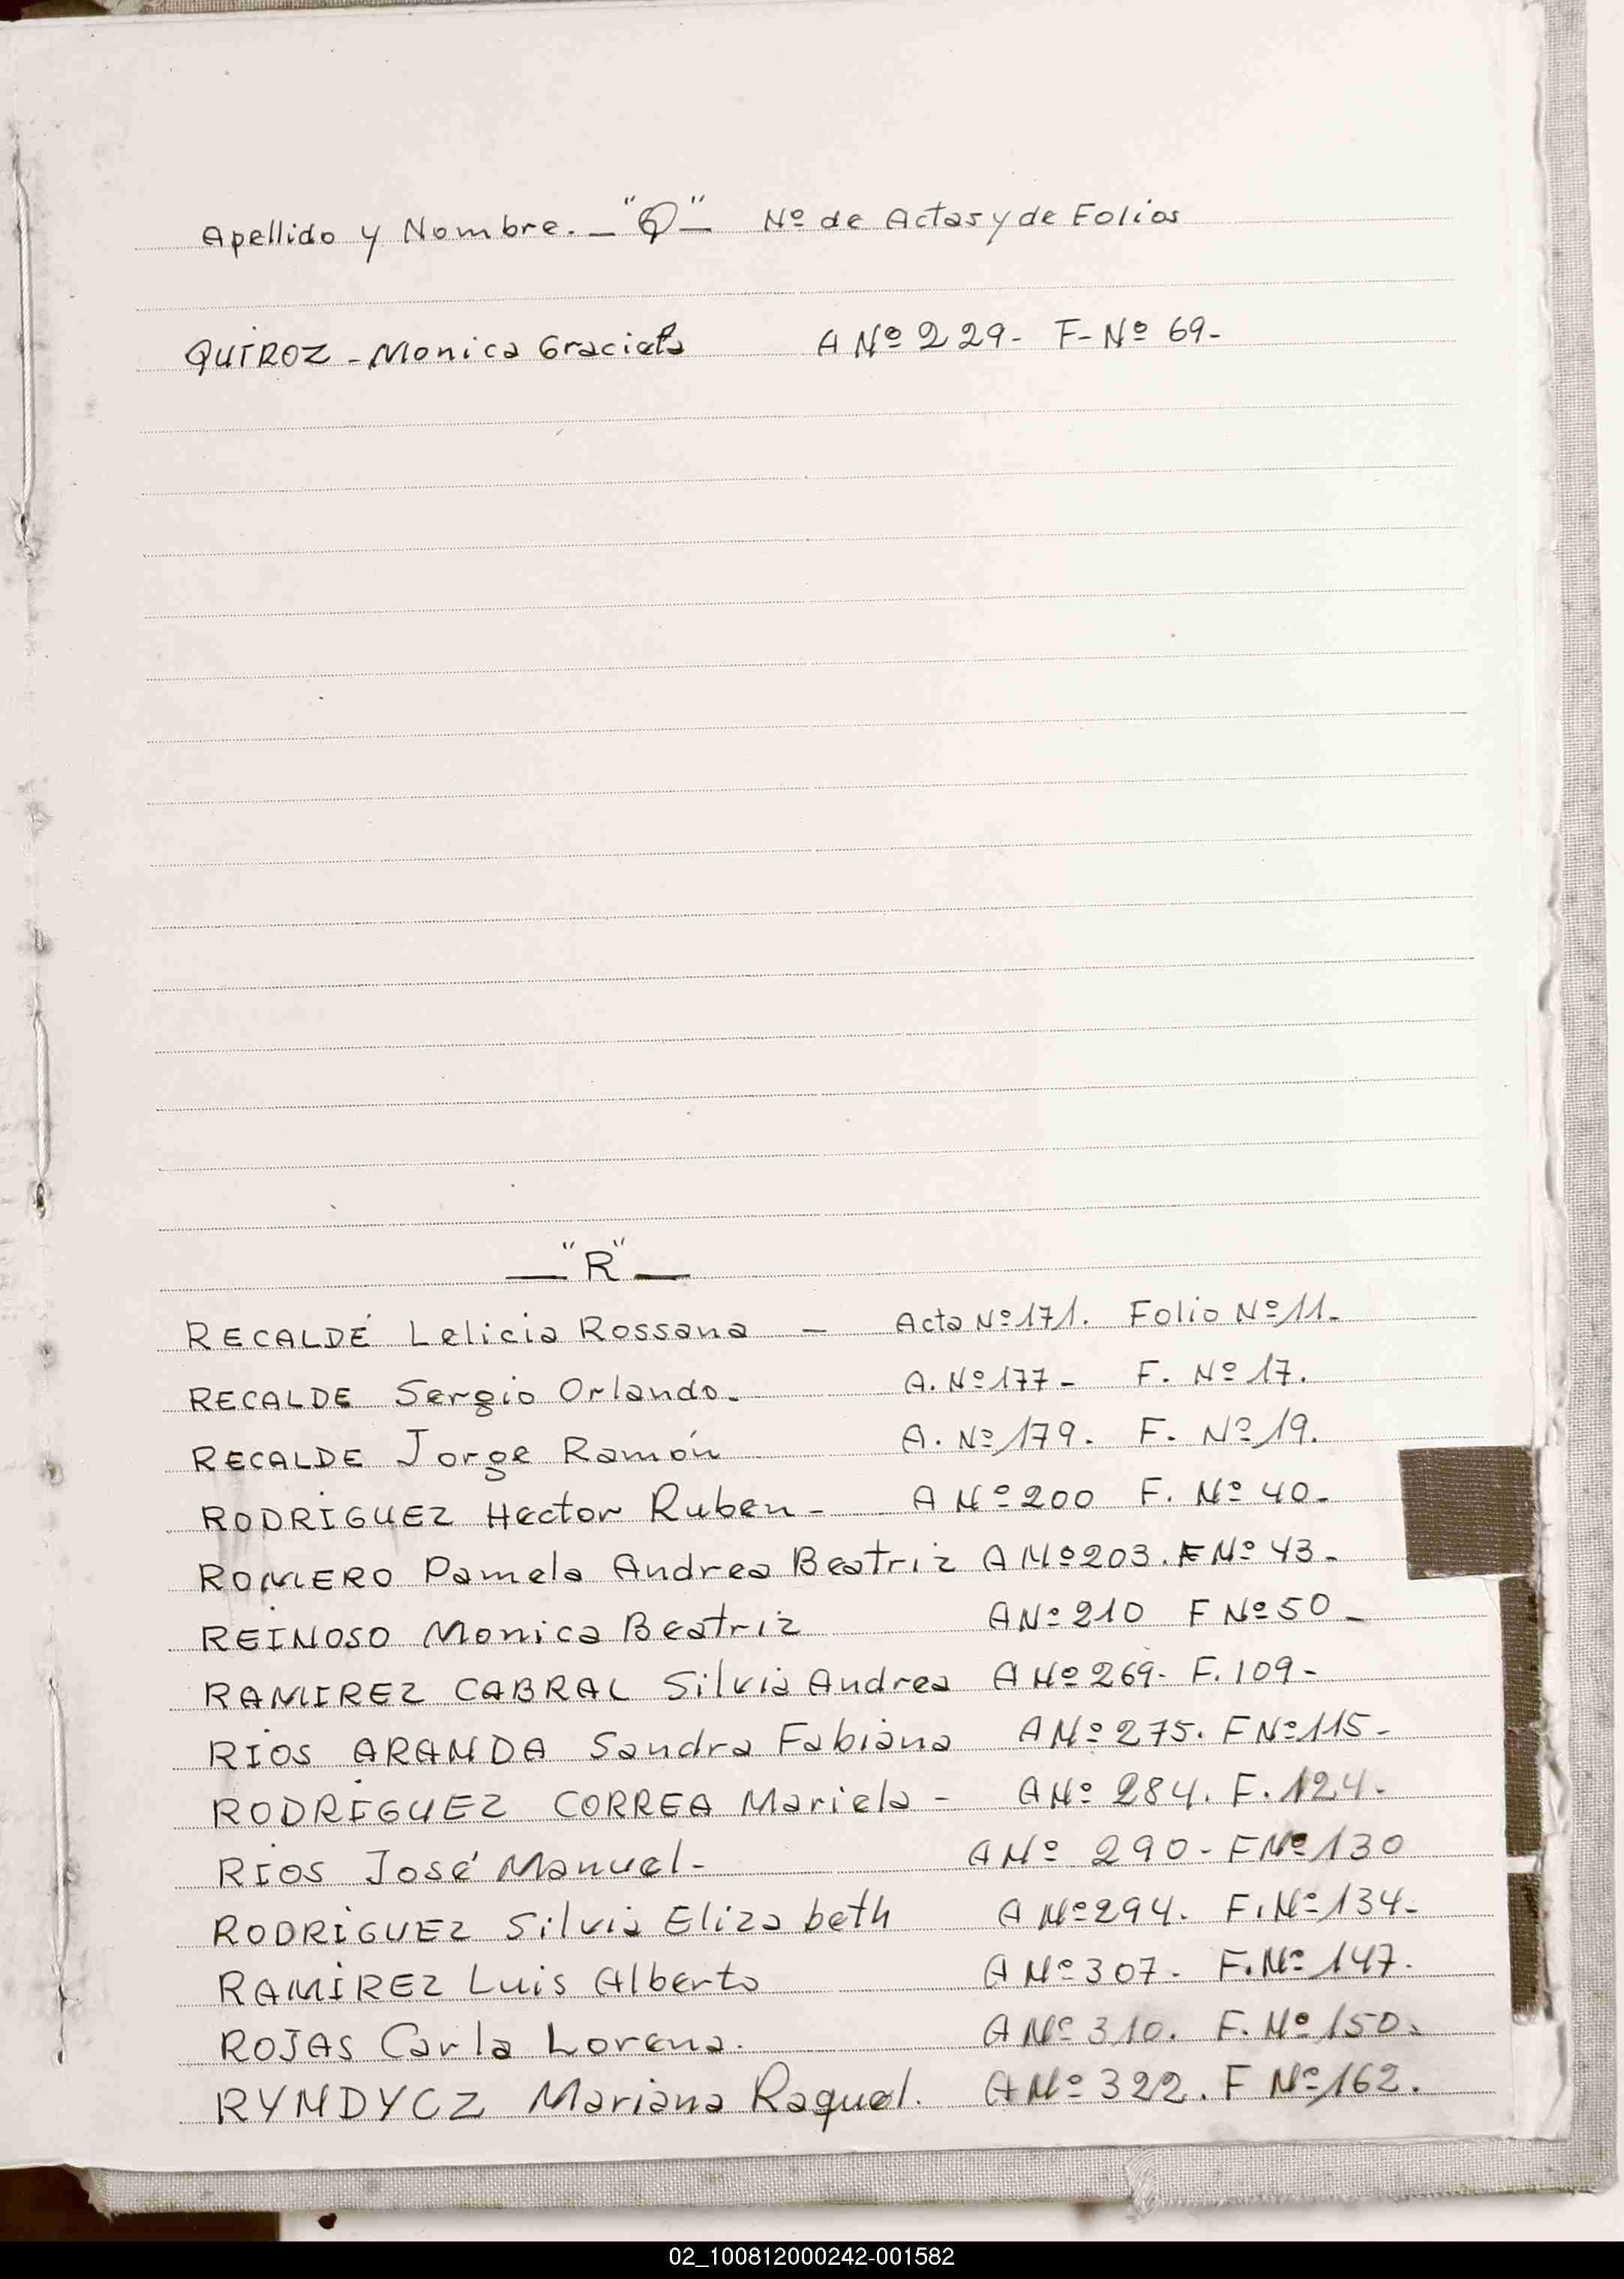 Apellido y Nombre. - "Q" - Nº de Actas y de Folios
QUIROZ - Monica Graciela A Nº 229- F- Nº 69-
- "R" -
RECALDÉ Lelicia Rossana - Acta Nº 171. Folio Nº 11-
RECALDE Sergio Orlando. A. Nº 177- F. Nº 17.
RECALDE Jorge Ramón A. Nº 179. F. Nº 19.
RODRIGUEZ Hector Ruben- A Nº 200 F. Nº 40-
ROMERO Pamela Andrea Beatriz A Nº 203. F Nº 43-
REINOSO Monica Beatriz A Nº 210 F Nº 50-
RAMIREZ CABRAL Silvia Andrea A Nº 269- F. 109-
RIOS ARANDA Sandra Fabiana A Nº 275. F Nº 115-
RODRIGUEZ CORREA Mariela- A Nº 284. F. 124-
RIOS José Manuel- A Nº 290- F Nº 130
RODRIGUEZ Silvia Elizabeth A Nº 294. F. Nº 134-
RAMIREZ Luis Alberto A Nº 307- F. Nº 147.
ROJAS Carla Lorena. A Nº 310. F. Nº 150.
RYNDYCZ Mariana Raquel. A Nº 322. F Nº 162.
02_100812000242-001582